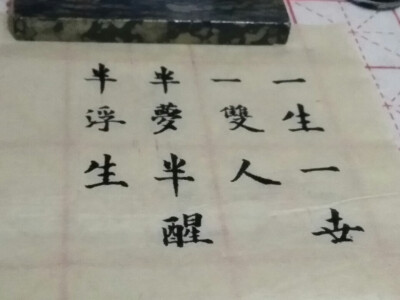 一生一世
一雙人
半夢半醒
半浮生